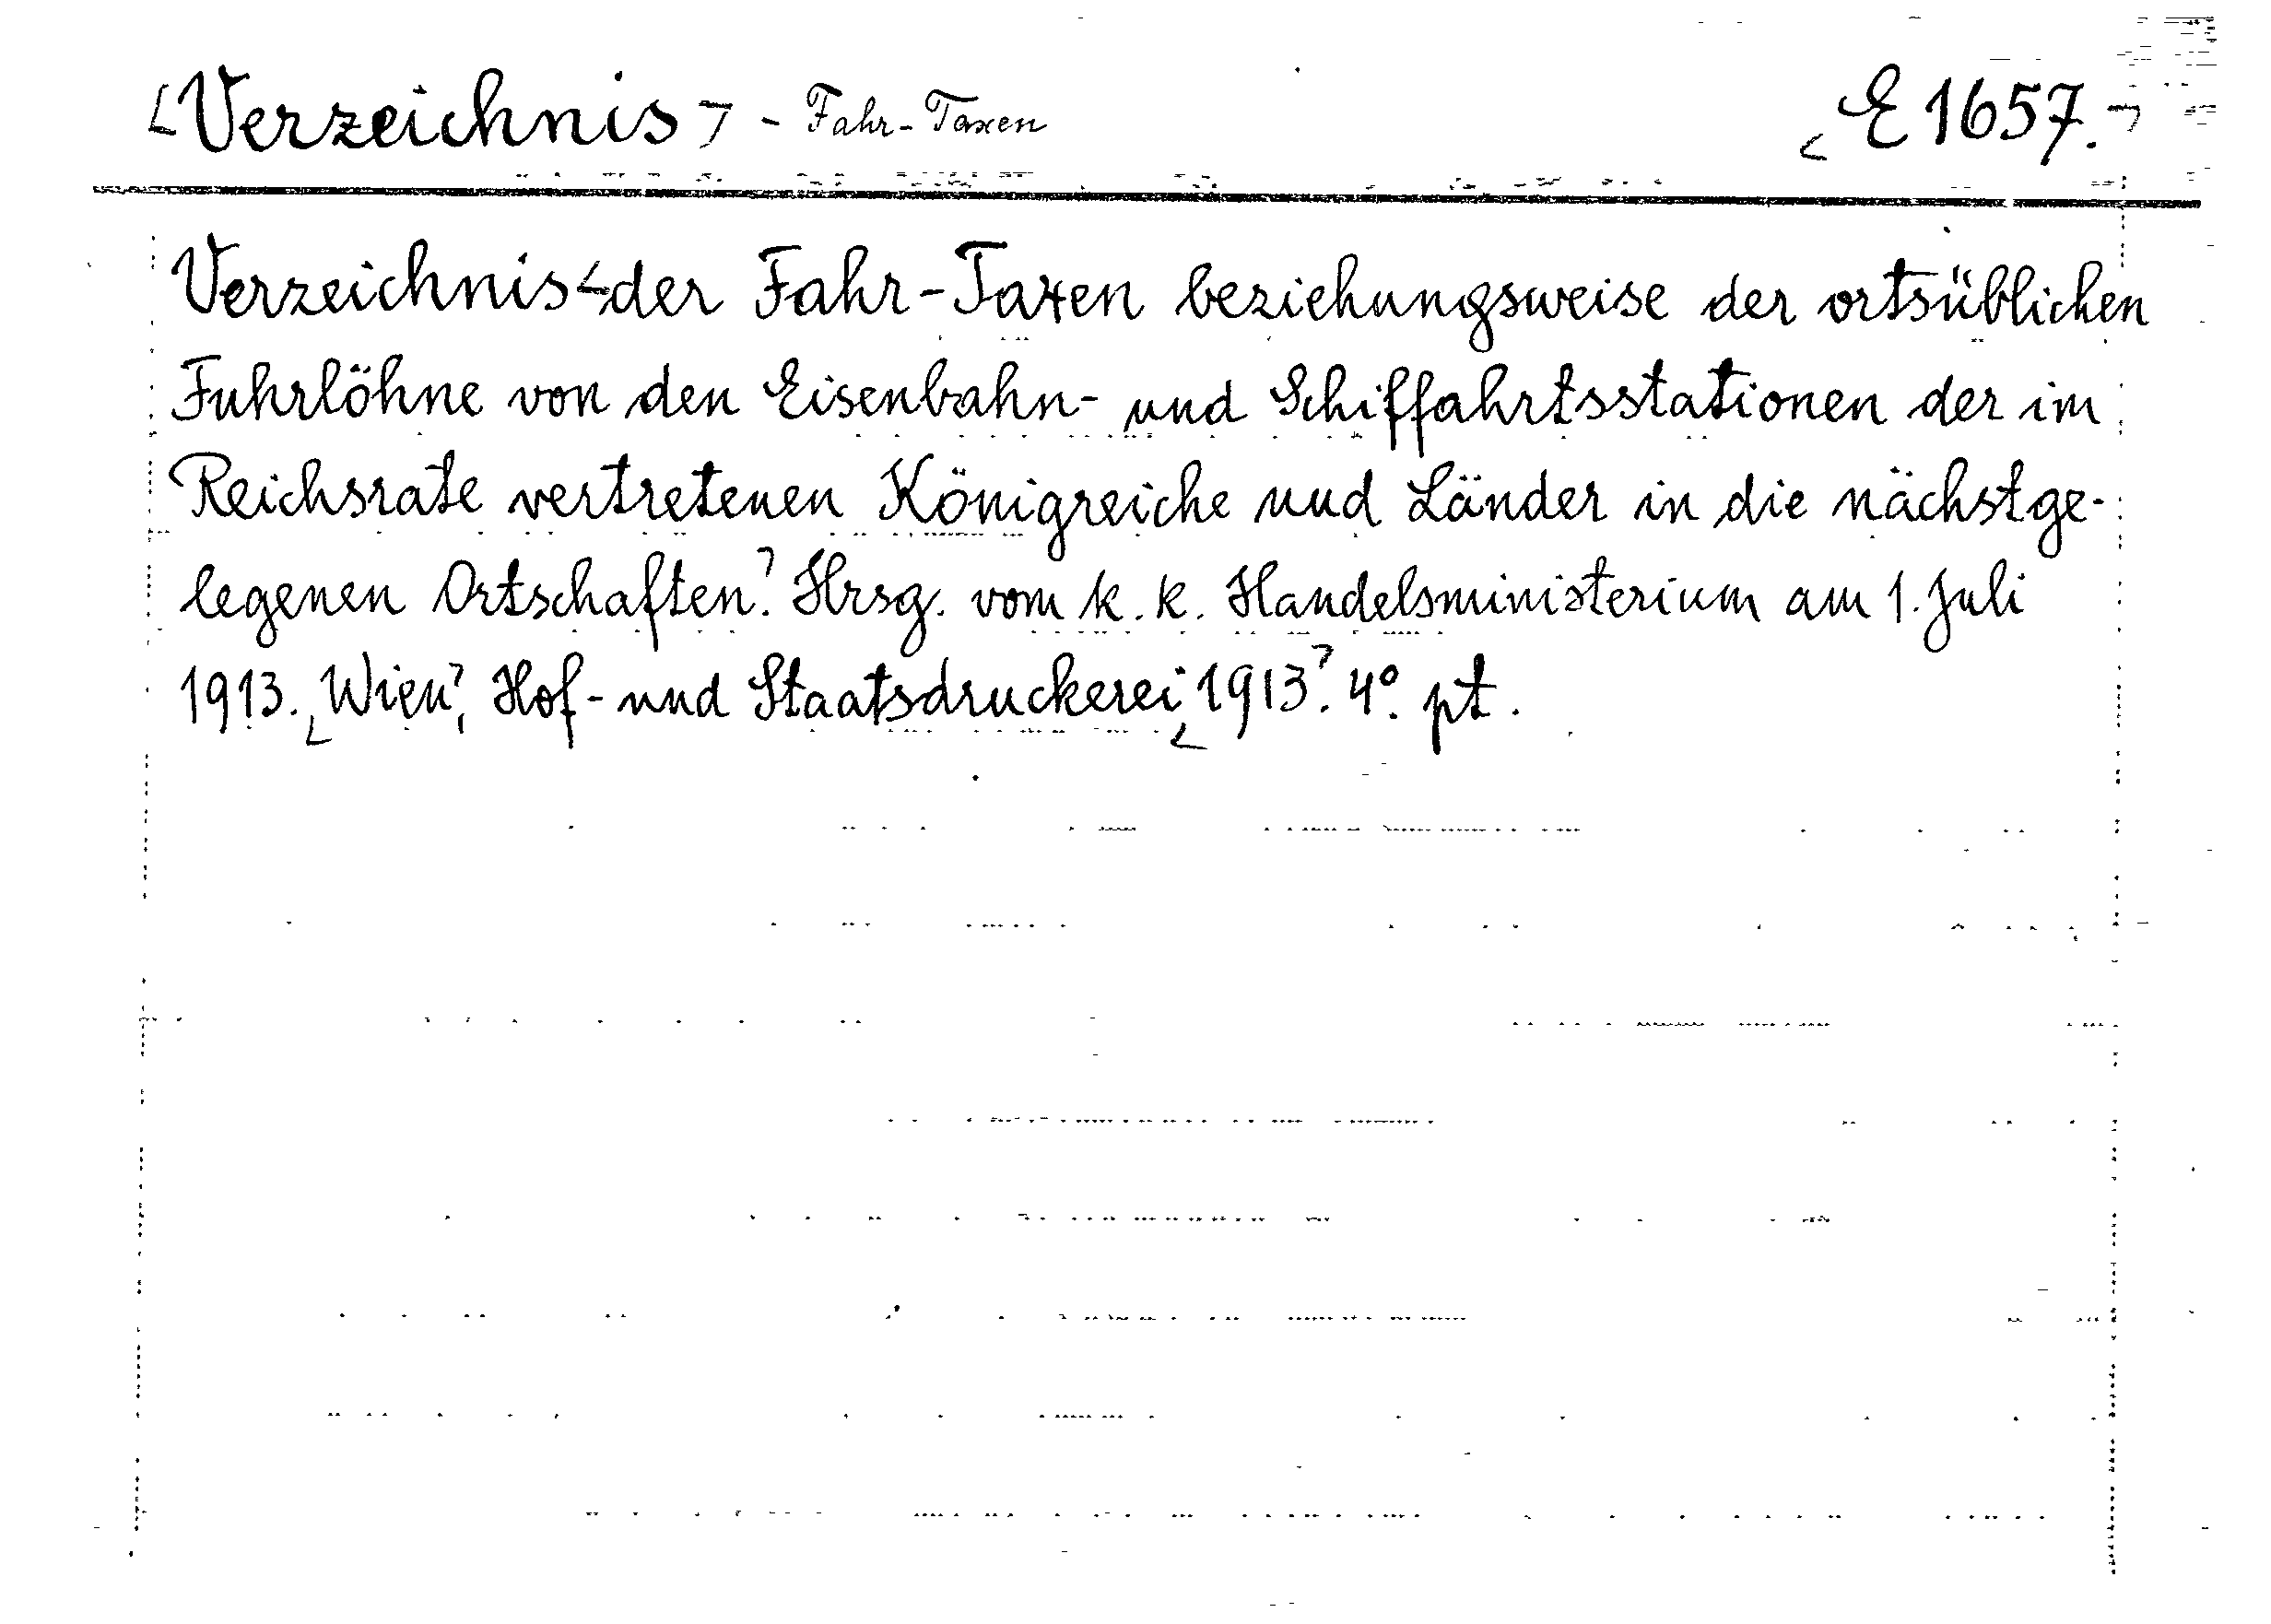 Verzeichnis - Fahr-Taxen E 1657.
Verzeichnis der Fahr-Taxen beziehungsweise der ortsüblichen
Fuhrlöhne von den Eisenbahn- und Schiffahrtsstationen der im
Reichsrate vertretenen Königreiche und Länder in die nächstge-
legenen Ortschaften. Hrsg. vom k. k. Handelsministerium am 1. Juli
1913. Wien, Hof- und Staatsdruckerei 1913. 4°. pt.